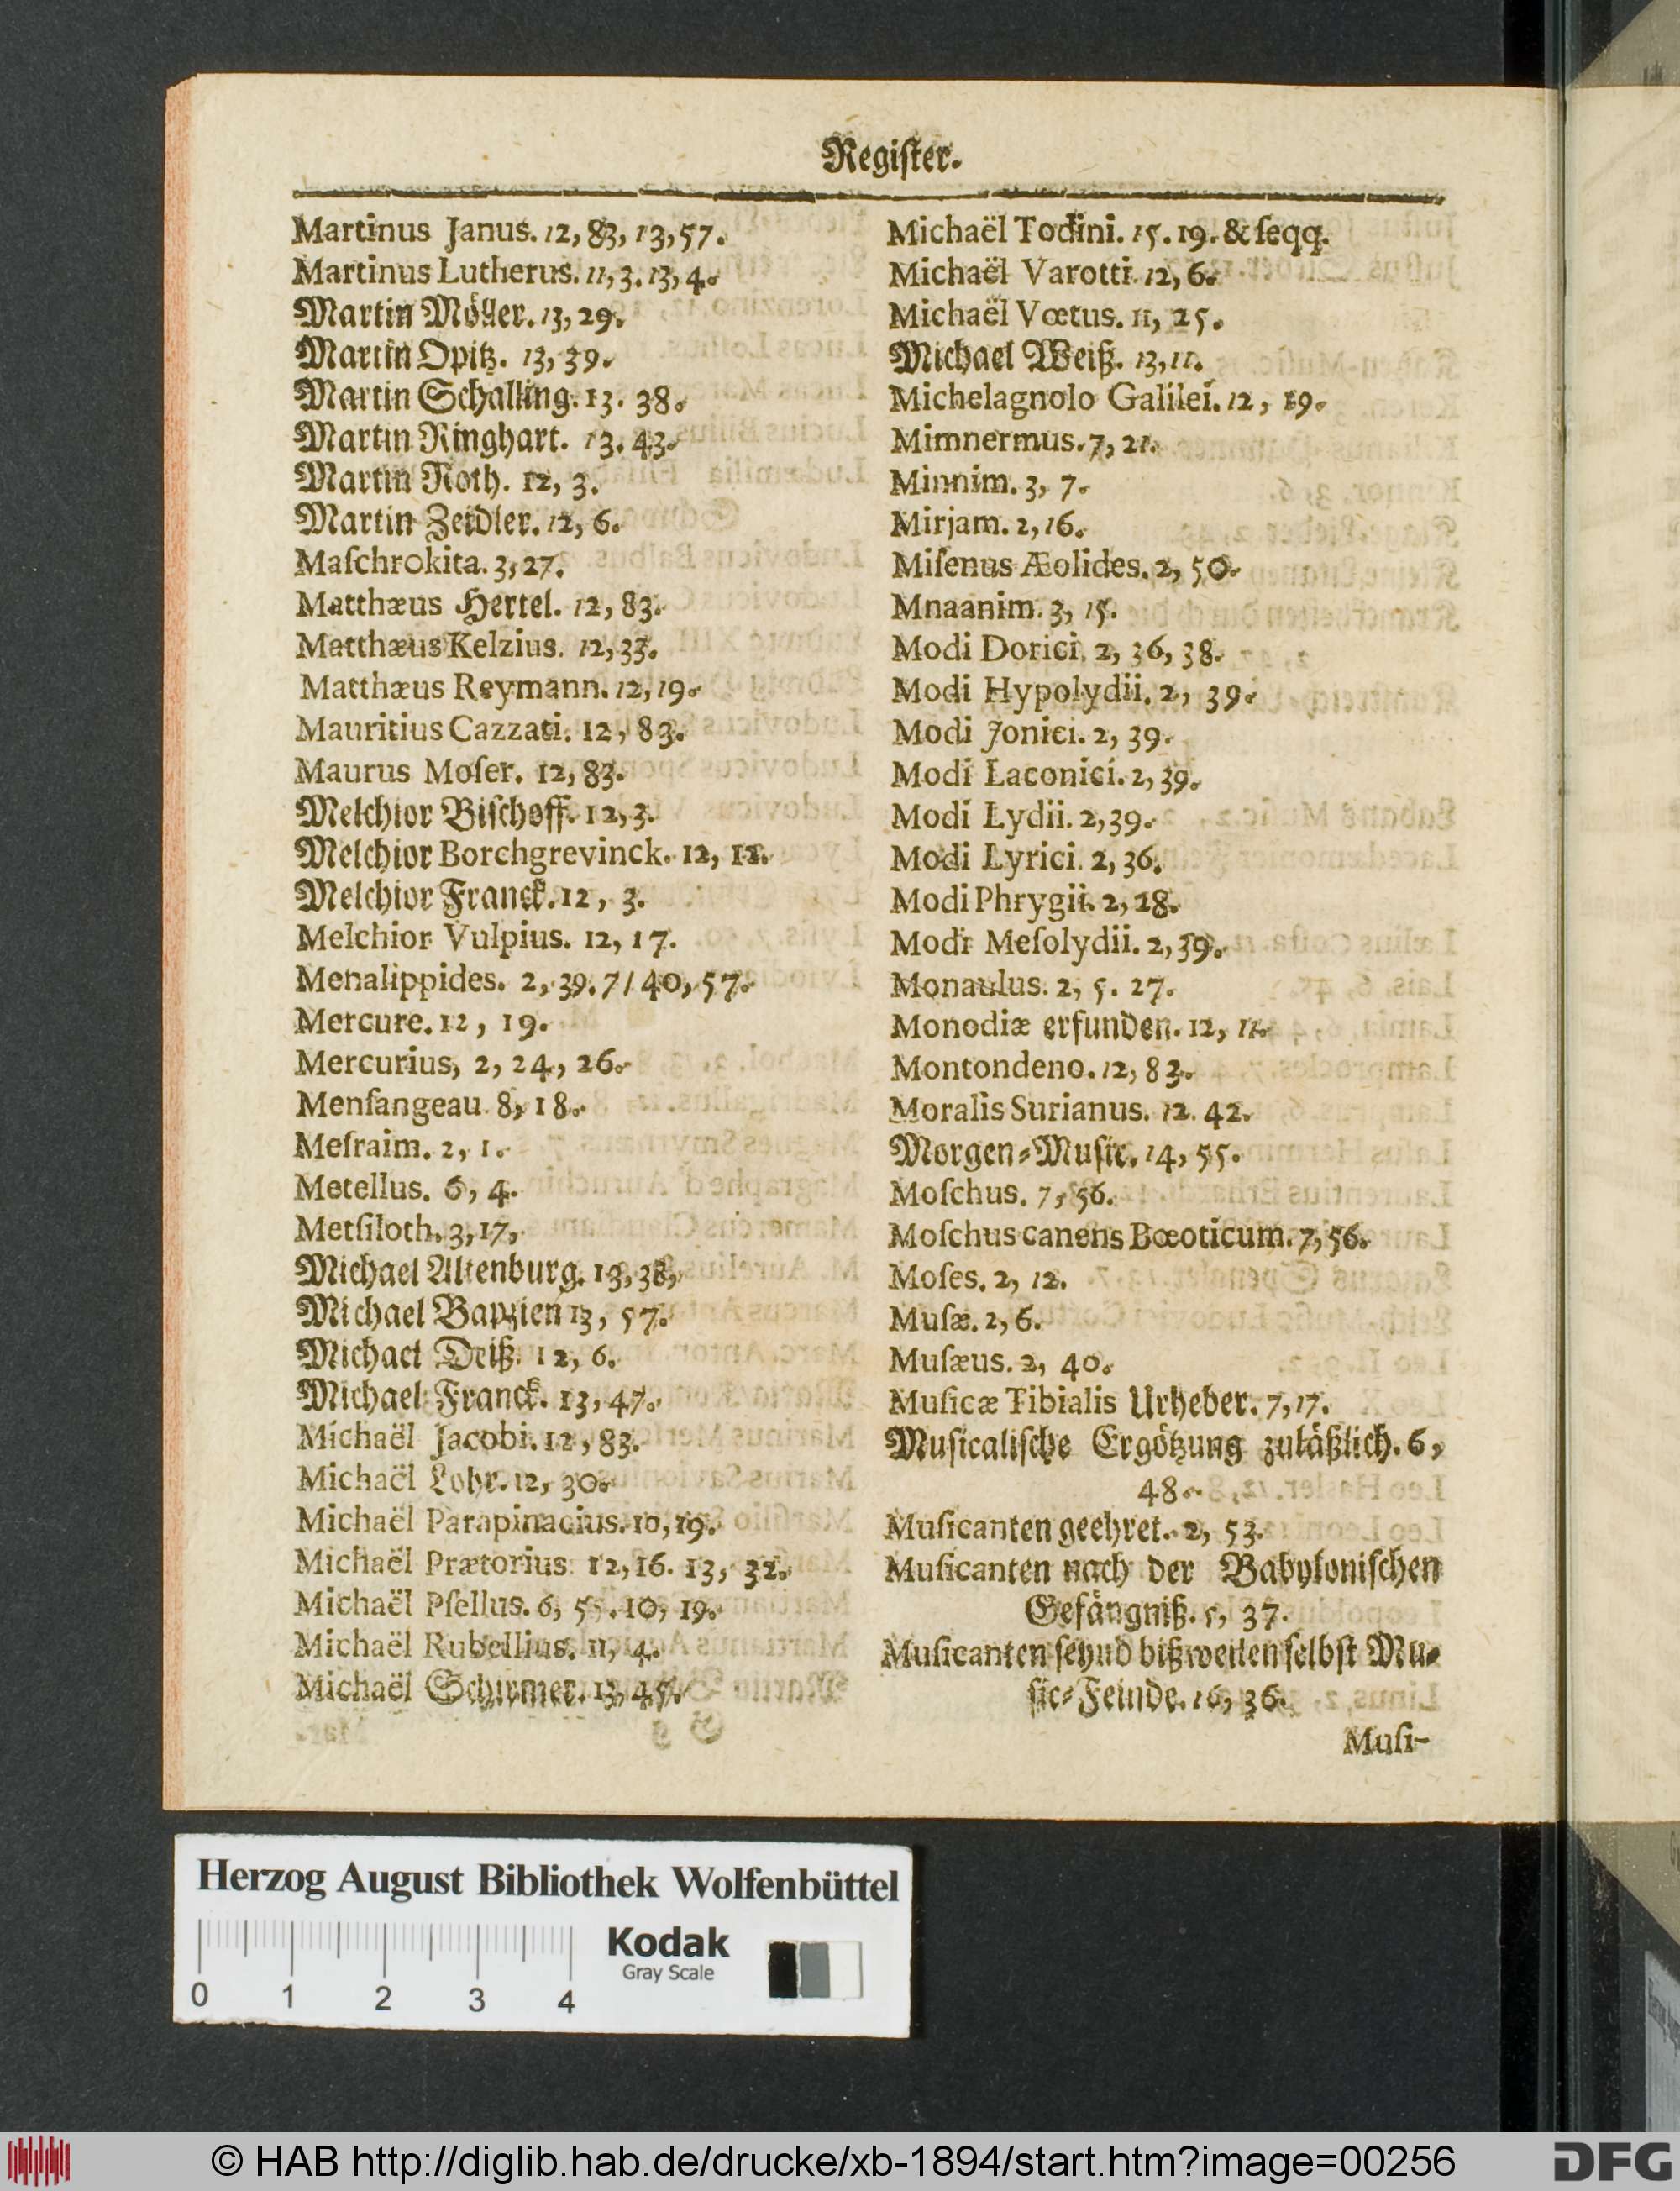 Regiſter.
Martinus Janus. 12, 83, 13, 57.
Martinus Lutherus. 11, 3. 13, 4.
Martin Möller. 13, 29.
Martin Opitz. 13, 39.
Martin Schalling. 13. 38.
Martin Ringhart. 13. 43.
Martin Roth. 12, 3.
Martin Zeidler. 12, 6.
Maſchrokita. 3, 27.
Matthæus Hertel. 12, 83.
Matthæus Kelzius. 12, 33.
Matthæus Reymann. 12, 19.
Mauritius Cazzati. 12, 83.
Maurus Moſer. 12, 83.
Melchior Biſchoff. 12, 3.
Melchior Borchgrevinck. 12, 12.
Melchior Franck. 12, 3.
Melchior Vulpius. 12, 17.
Menalippides. 2, 39. 7/ 40, 57.
Mercure. 12, 19.
Mercurius, 2, 24, 26.
Menſangeau. 8, 18.
Meſraim. 2, 1.
Metellus. 6, 4.
Metſiloth. 3, 17,
Michael Altenburg. 13, 38,
Michael Bapzien 13, 57.
Michael Deiß. 12, 6.
Michael Franck. 13, 47.
Michaël Jacobi. 12, 83.
Michaël Lohr. 12, 30.
Michaël Parapinacius. 10, 19.
Michaël Prætorius. 12, 16. 13, 32.
Michaël Pſellus. 6, 55. 10, 19.
Michaël Rubellius. 11, 4.
Michaël Schirmer. 13, 45.
Michaël Todini. 15. 19. & ſeqq.
Michaël Varotti. 12, 6.
Michaël Vœtus. 11, 25.
Michael Weiß. 13, 11.
Michelagnolo Galilei. 12, 19.
Mimnermus. 7, 21.
Minnim. 3, 7.
Mirjam. 2, 16.
Miſenus Æolides. 2, 50.
Mnaanim. 3, 15.
Modi Dorici. 2, 36, 38.
Modi Hypolydii. 2, 39.
Modi Jonici. 2, 39.
Modi Laconici. 2, 39.
Modi Lydii. 2, 39.
Modi Lyrici. 2, 36.
Modi Phrygii. 2, 28.
Modi Meſolydii. 2, 39.
Monaulus. 2, 5. 27.
Monodiæ erfunden. 12, 11.
Montondeno. 12, 83.
Moralis Surianus. 12. 42.
Morgen-Muſic. 14, 55.
Moſchus. 7, 56.
Moſchus canens Bœoticum. 7, 56.
Moſes. 2, 12.
Muſæ. 2, 6.
Muſæus. 2, 40.
Muſicæ Tibialis Urheber. 7, 17.
Muſicaliſche Ergötzung zuläßlich. 6,
48.
Muſicanten geehret. 2, 53.
Muſicanten nach der Babyloniſchen
Gefängniß. 5, 37.
Muſicanten ſeynd bißweilen ſelbſt Mu-
ſic-Feinde. 16, 36.
Muſi-
Herzog August Bibliothek Wolfenbüttel
Kodak
Gray Scale
0 1 2 3 4
© HAB http://diglib.hab.de/drucke/xb-1894/start.htm?image=00256
DFG